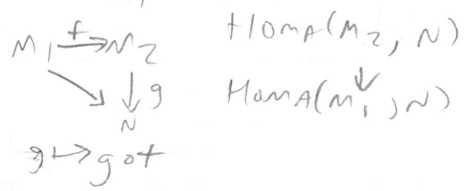 M₁ f→ M₂
g
N
g ↦ g∘f
Hom_A(M₂, N)
↓
Hom_A(M₁, N)